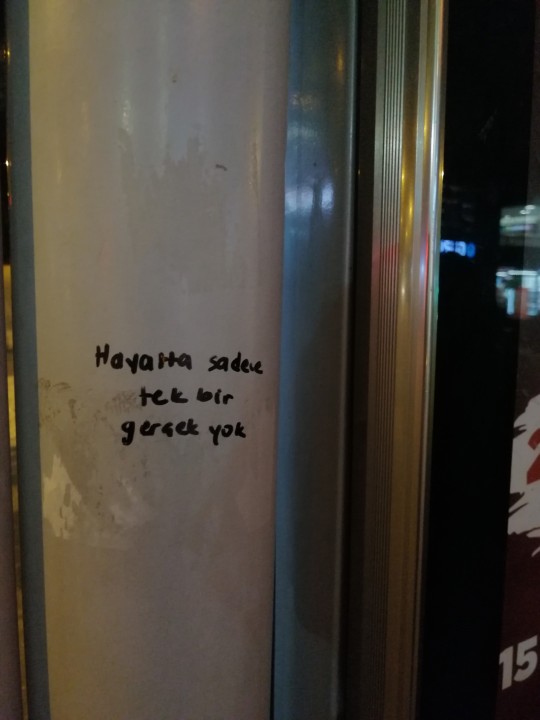 Hayatta sadece
tek bir
gerçek yok
15